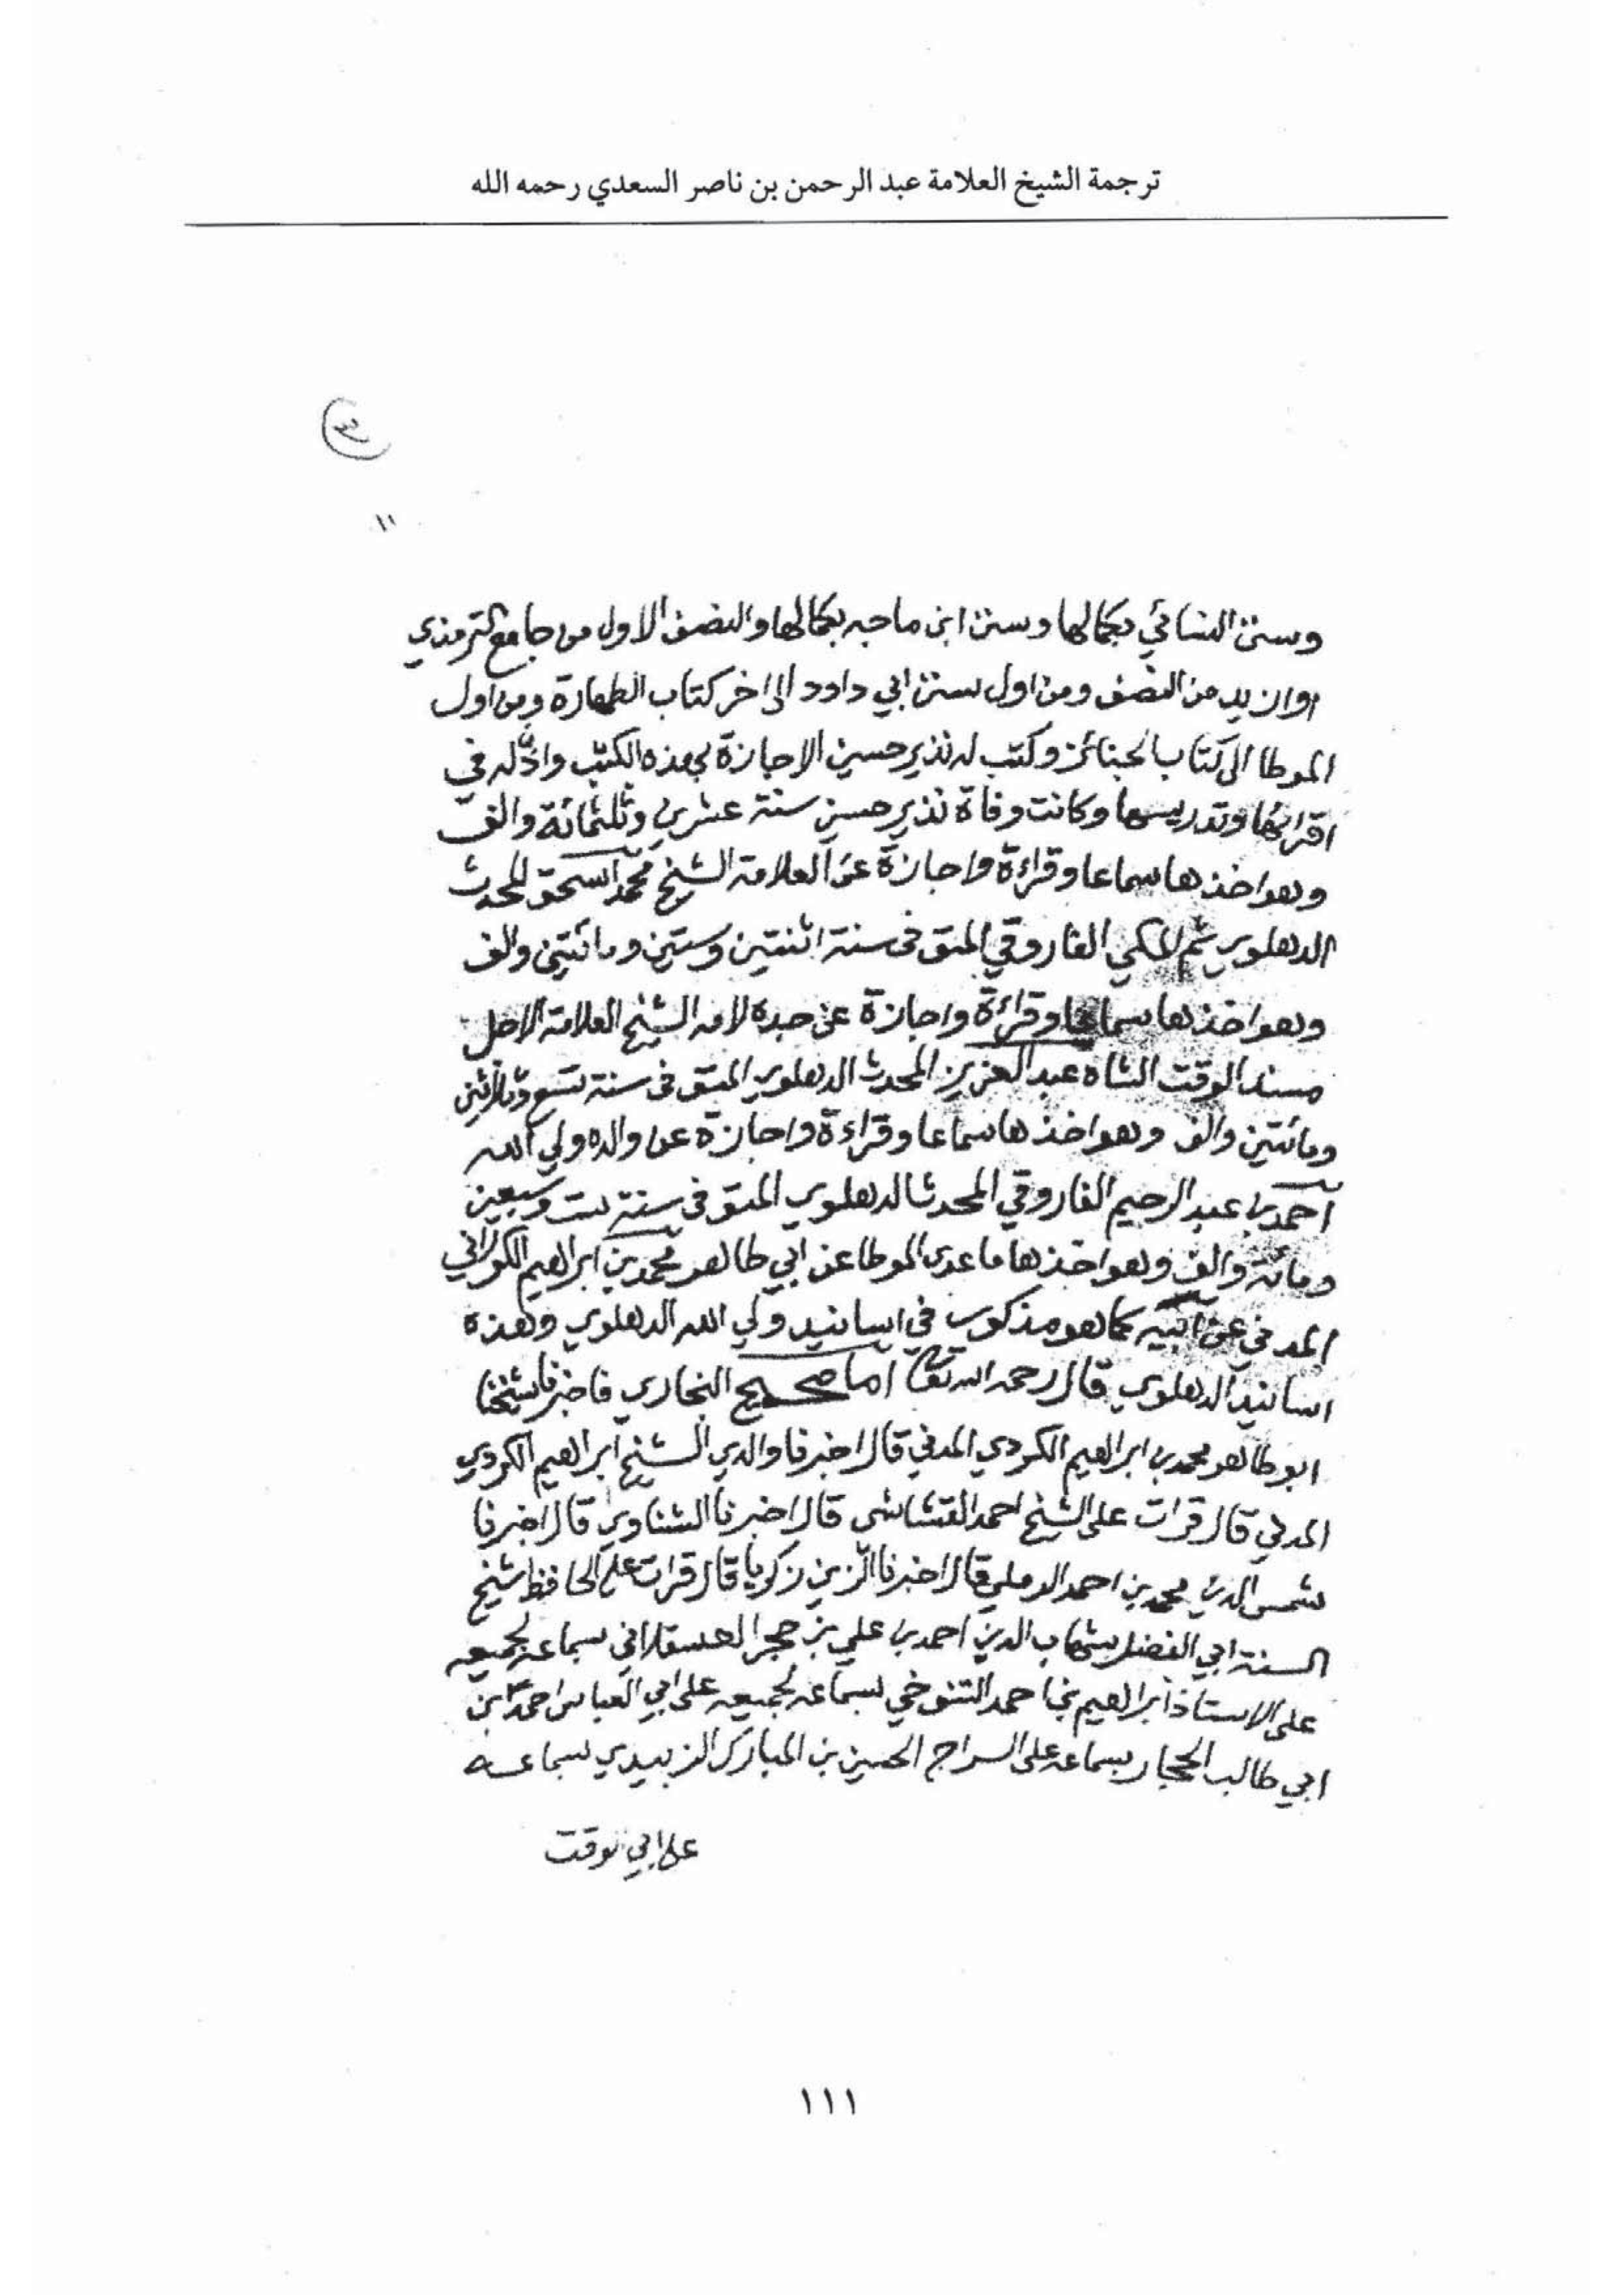 ترجمة الشيخ العلامة عبد الرحمن بن ناصر السعدي رحمه الله
١١
وسنن النسائي بكمالها وسنن ابن ماجه بكمالها والنصف الاول من جامع الترمذي
او ازيد من النصف ومن اول سنن ابي داود الى اخر كتاب الطهارة ومن اول
الموطا الى كتاب الجنائز وكتب له نذير حسين الاجازة بهذه الكتب واذن له في
اقرائها وتدريسها وكانت وفاة نذير حسين سنة عشرين وثلثمائة والف
وهو اخذها سماعا وقراءة واجازة عن العلامة الشيخ محمد اسحق المحدث
الدهلوي ثم المكي الفاروقي المتوفى سنة اثنتين وستين ومائتين والف
وهو اخذها سماعا وقراءة واجازة عن جده لامه الشيخ العلامة الاجل
مسند الوقت الشاه عبد العزيز المحدث الدهلوي المتوفى سنة تسع وثلاثين
ومائتين والف وهو اخذها سماعا وقراءة واجازة عن والده ولي الله
احمد بن عبد الرحيم الفاروقي المحدث الدهلوي المتوفى سنة ست وسبعين
ومائة والف وهو اخذها ما عدى الموطا عن ابي طاهر محمد بن ابراهيم الكوراني
المدني عن ابيه كما هو مذكور في اسانيد ولي الله الدهلوي وهذه
اسانيد الدهلوي قال رحمه الله تعالى اما صحيح البخاري فاخبرنا شيخنا
ابو طاهر محمد بن ابراهيم الكردي المدني قال اخبرنا والدي الشيخ ابراهيم الكردي
المدني قال قرات على الشيخ احمد القشاشي قال اخبرنا الشناوي قال اخبرنا
شمس الدين محمد بن احمد الرملي قال اخبرنا الزين زكريا قال قرات على الحافظ شيخ
السنة ابي الفضل شهاب الدين احمد بن علي بن حجر العسقلاني بسماعه لجميعه
على الاستاذ ابراهيم بن احمد التنوخي بسماعه لجميعه على ابي العباس احمد بن
ابي طالب الحجار بسماعه على السراج الحسين بن المبارك الزبيدي بسماعه
على ابي لوقت
١١١